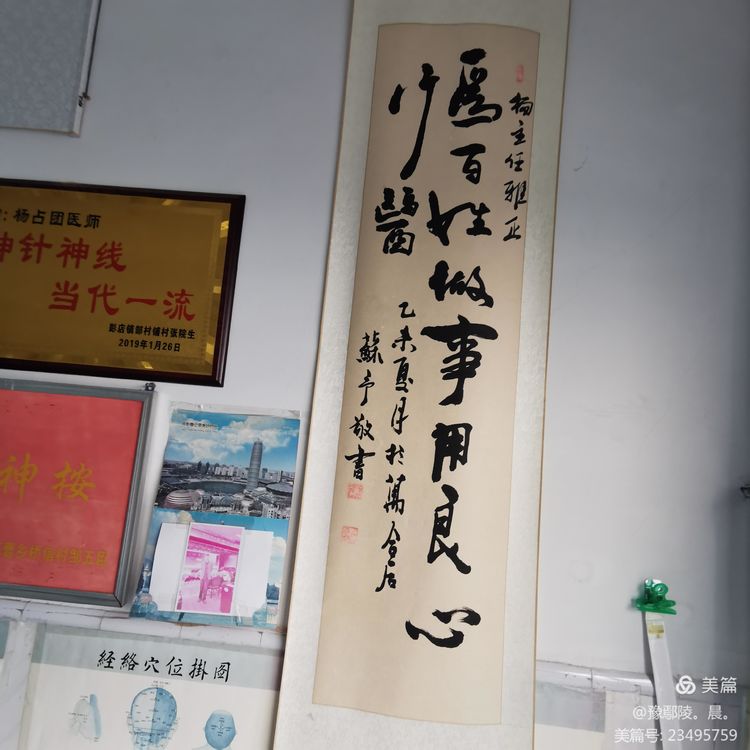 杨主任雅正
爲百姓做事用良心
行醫
乙未夏月於萬合居
蘇予敬書
：杨占团医师
神针神线
当代一流
彭店镇邹村铺村张院生
2019年1月26日
神按
経絡穴位掛図
美篇
@豫鄢陵。晨。
美篇号: 23495759